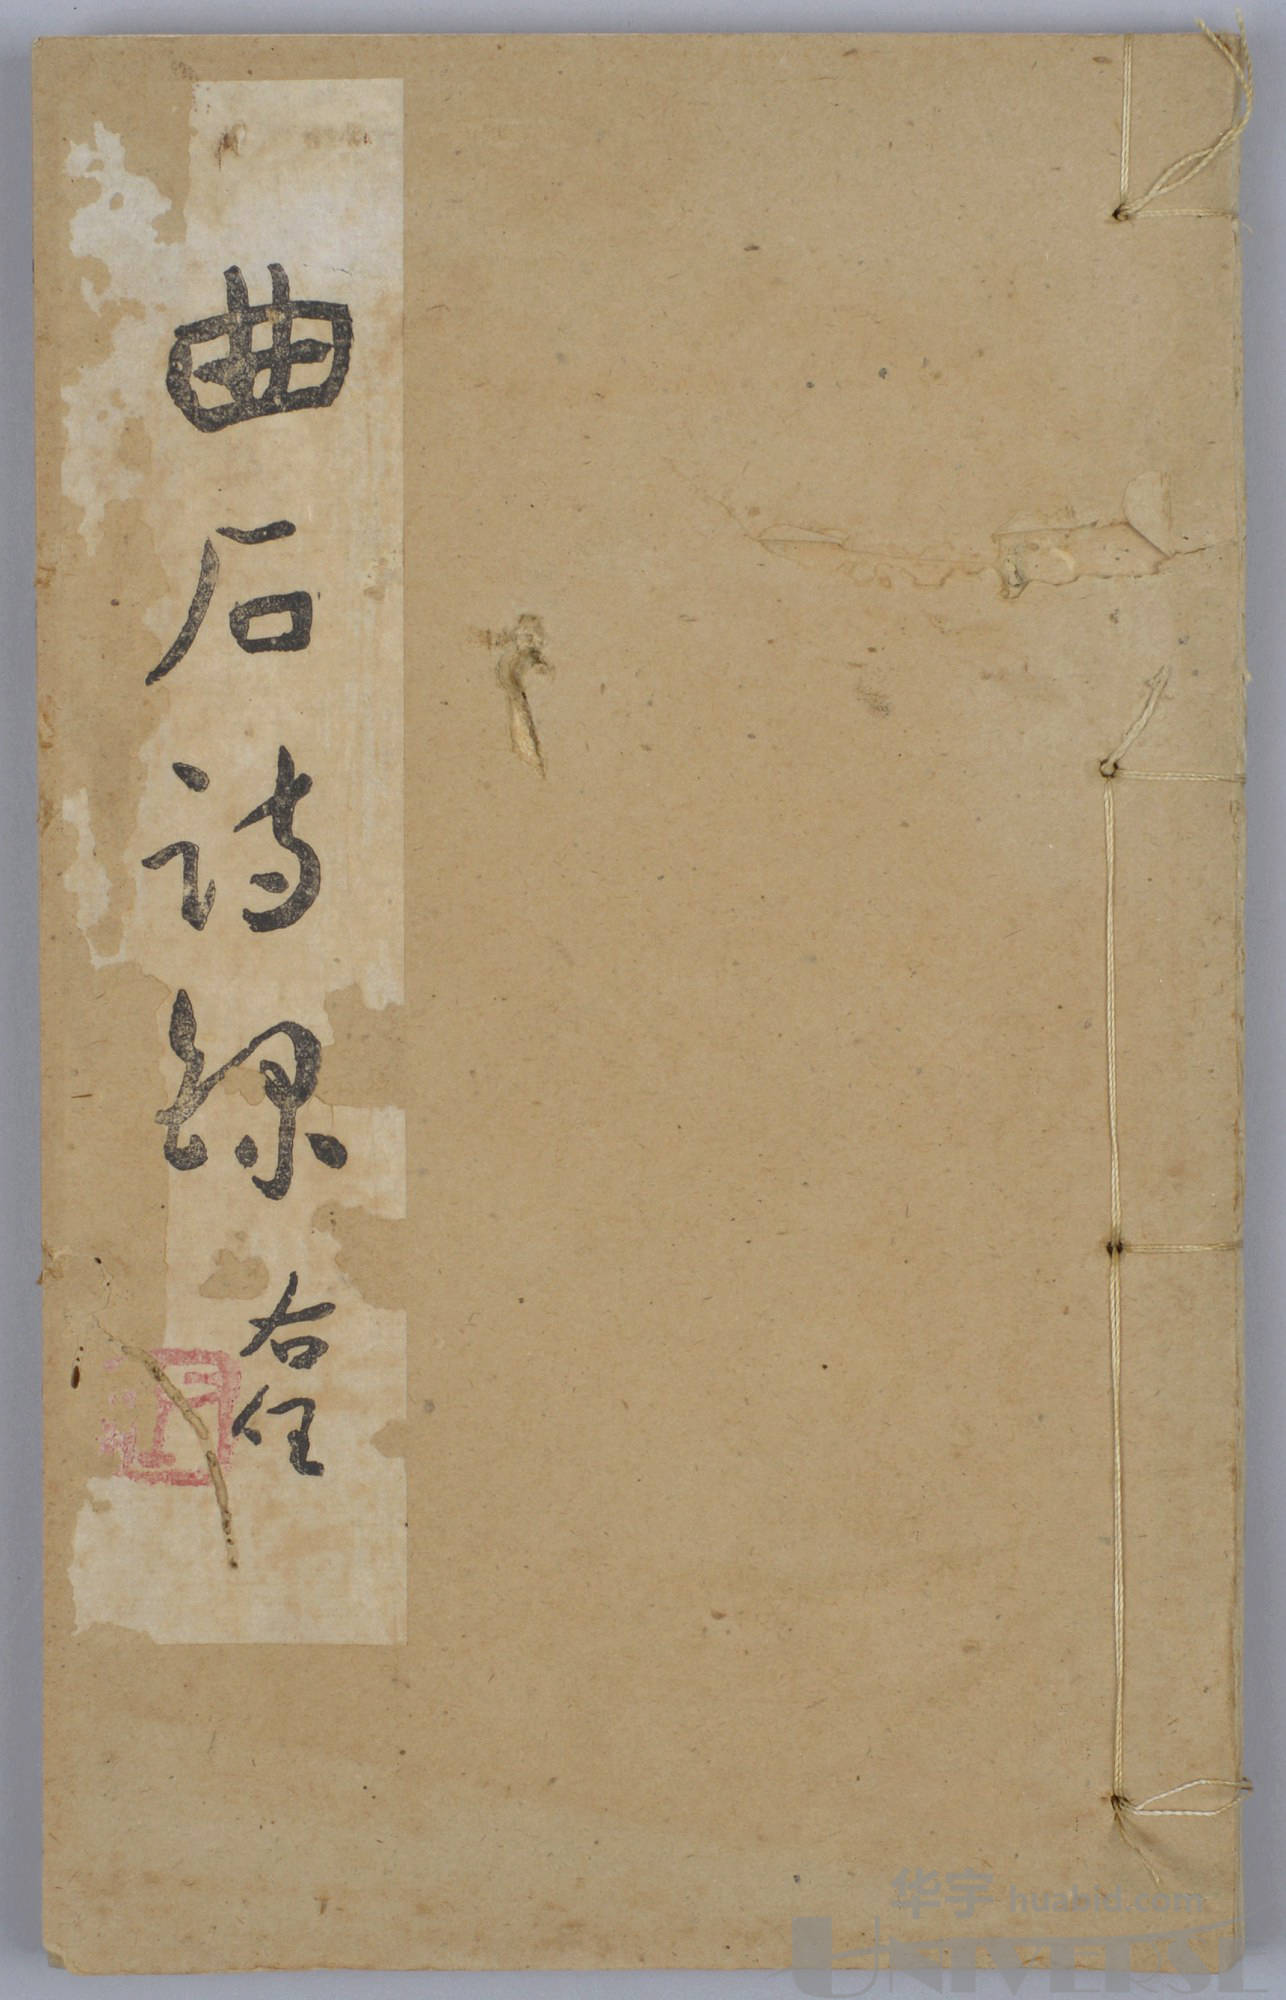 曲石诗录
右任
华宇 huabid.com
UNIVERSE